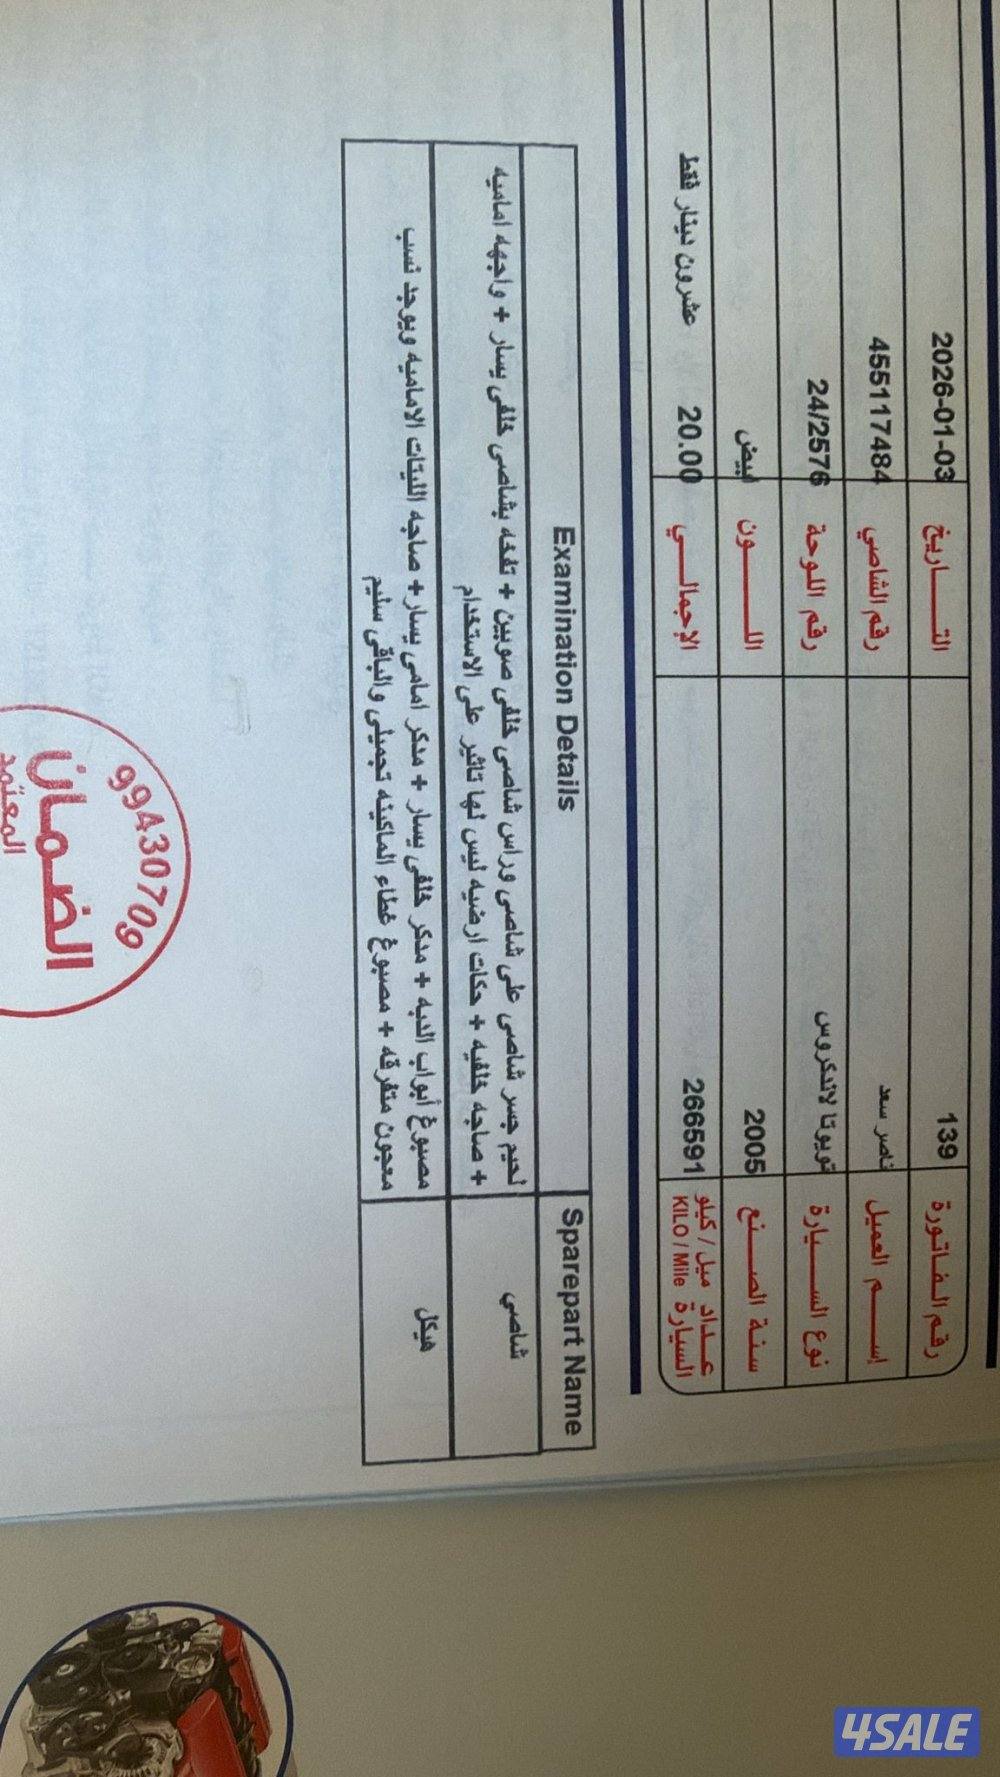 رقم الفاتورة 139 التـــاريخ 2026-01-03
إســـم العميل ناصر سعد رقم الشاصي 455117484
نوع الســـيارة تويوتا لاندكروس رقم اللوحة 24/2576
سنة الصـــنع 2005 اللـــــون ابيض
عـداد ميل / كيلو
السيارة KILO / Mile 266591 الإجمالـــي 20.00 عشرون دينار فقط
Sparepart Name Examination Details
شاصي لحيم جسر شاصي على شاصي وراس شاصي خلفي صوبين + نفخه بشاصي خلفي يسار + واجهه اماميه
+ صاجه خلفيه + حكات ارضيه ليس لها تاثير على الاستخدام
هيكل مصبوغ أبواب الدبه + مدكر خلفي يسار + مدكر امامي يسار + صاجه الليتات الاماميه ويوجد نسب
معجون متفرقه + مصبوغ غطاء الماكينه تجميلي والباقي سليم
99430709
الضمان
المعتمد
4SALE